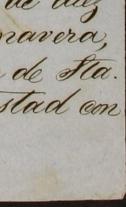 de diez
navera,
de Sta.
stad con